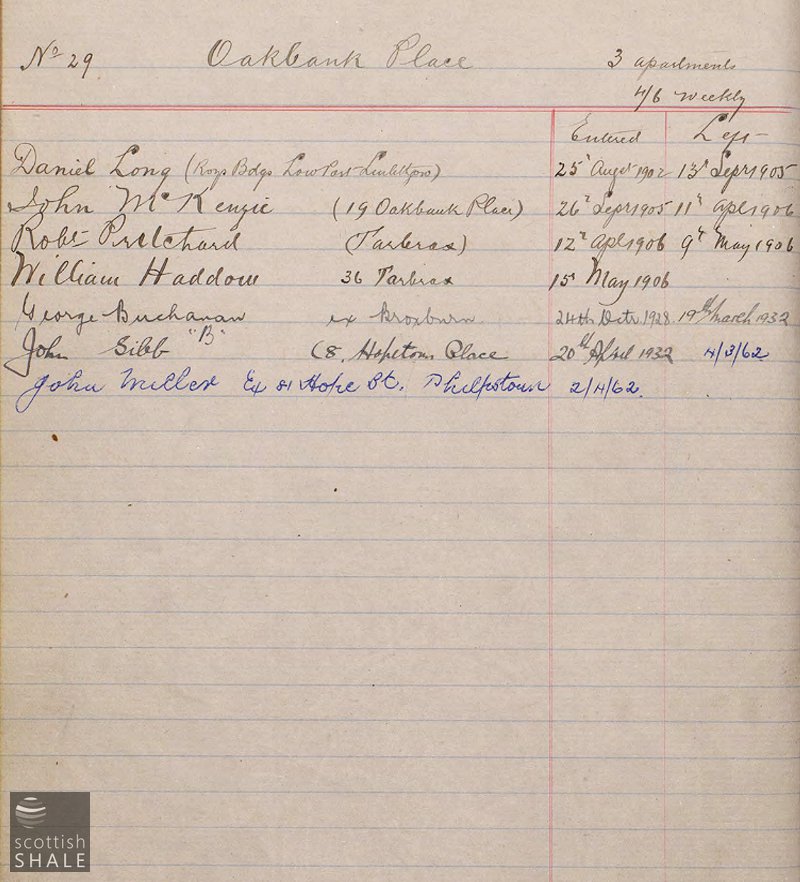 No 29 Oakbank Place 3 apartments
4/6 weekly
Entered Left
Daniel Long (Roys Bdgs Low Port Linlithgow) 25th Augt 1902 13th Sepr 1905
John McKenzie (19 Oakbank Place) 26th Sepr 1905 11th Apl 1906
Robt Pritchard (Tarbrax) 12th Apl 1906 9th May 1906
William Haddow 36 Tarbrax 15th May 1906
George Buchanan ex Broxburn 24th Octr 1928 19th March 1932
John Gibb "B" (8. Hopetoun Place 20th April 1932 4/3/62
John Miller Ex Hope St. Philpstoun 2/4/62.
scottish
SHALE